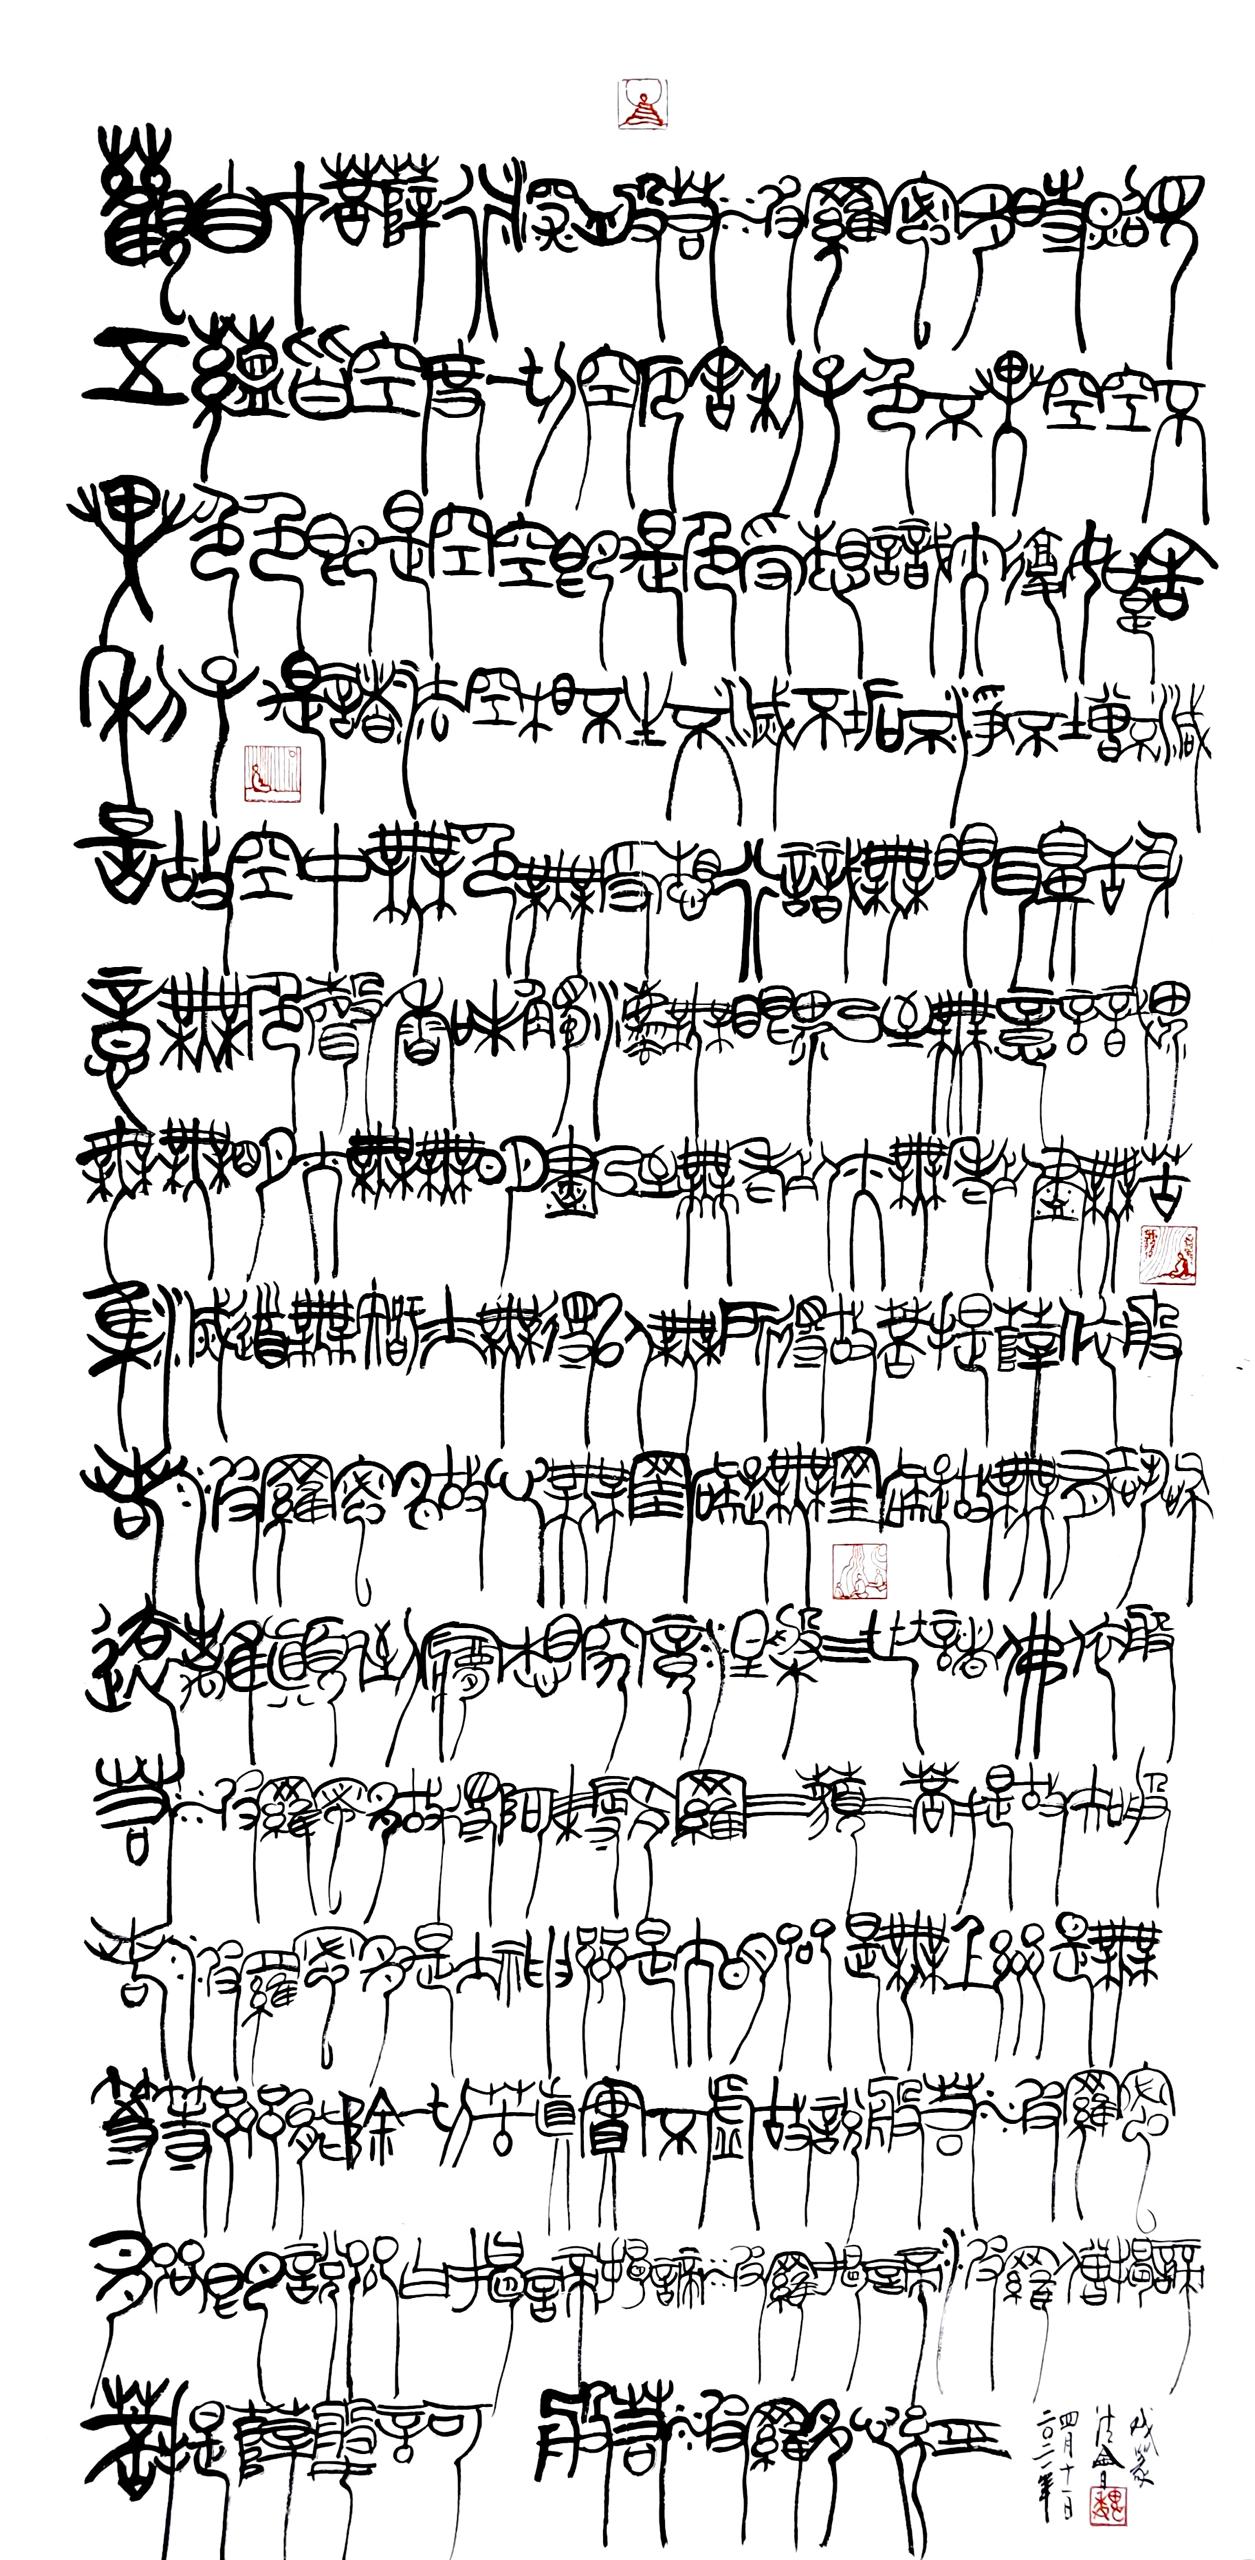 觀自在菩薩行深般若波羅蜜多時照見
五蘊皆空度一切空厄舍利子色不異空空不
異色色即是空空即是色受想識亦復如是舍
利子是諸法空相不生不滅不垢不淨不增不減
是故空中無色無受想行識無眼耳鼻舌身
意無色聲香味觸法無眼界乃至無意識界
無無明亦無無明盡乃至無老死亦無老死盡無苦
集滅道無智亦無得以無所得故菩提薩依般
若波羅蜜多故心無罣礙無罣礙故無有恐怖
遠離顛倒夢想究竟涅槃三世諸佛依般
若波羅蜜多故得阿耨多羅三藐三菩提故知般
若波羅蜜多是大神咒是大明咒是無上咒是無
等等咒能除一切苦真實不虛故說般若波羅蜜
多咒即說咒曰揭諦揭諦波羅揭諦波羅僧揭諦
菩提薩婆訶 般若波羅多心經
四月十一日
二〇二一年
魏